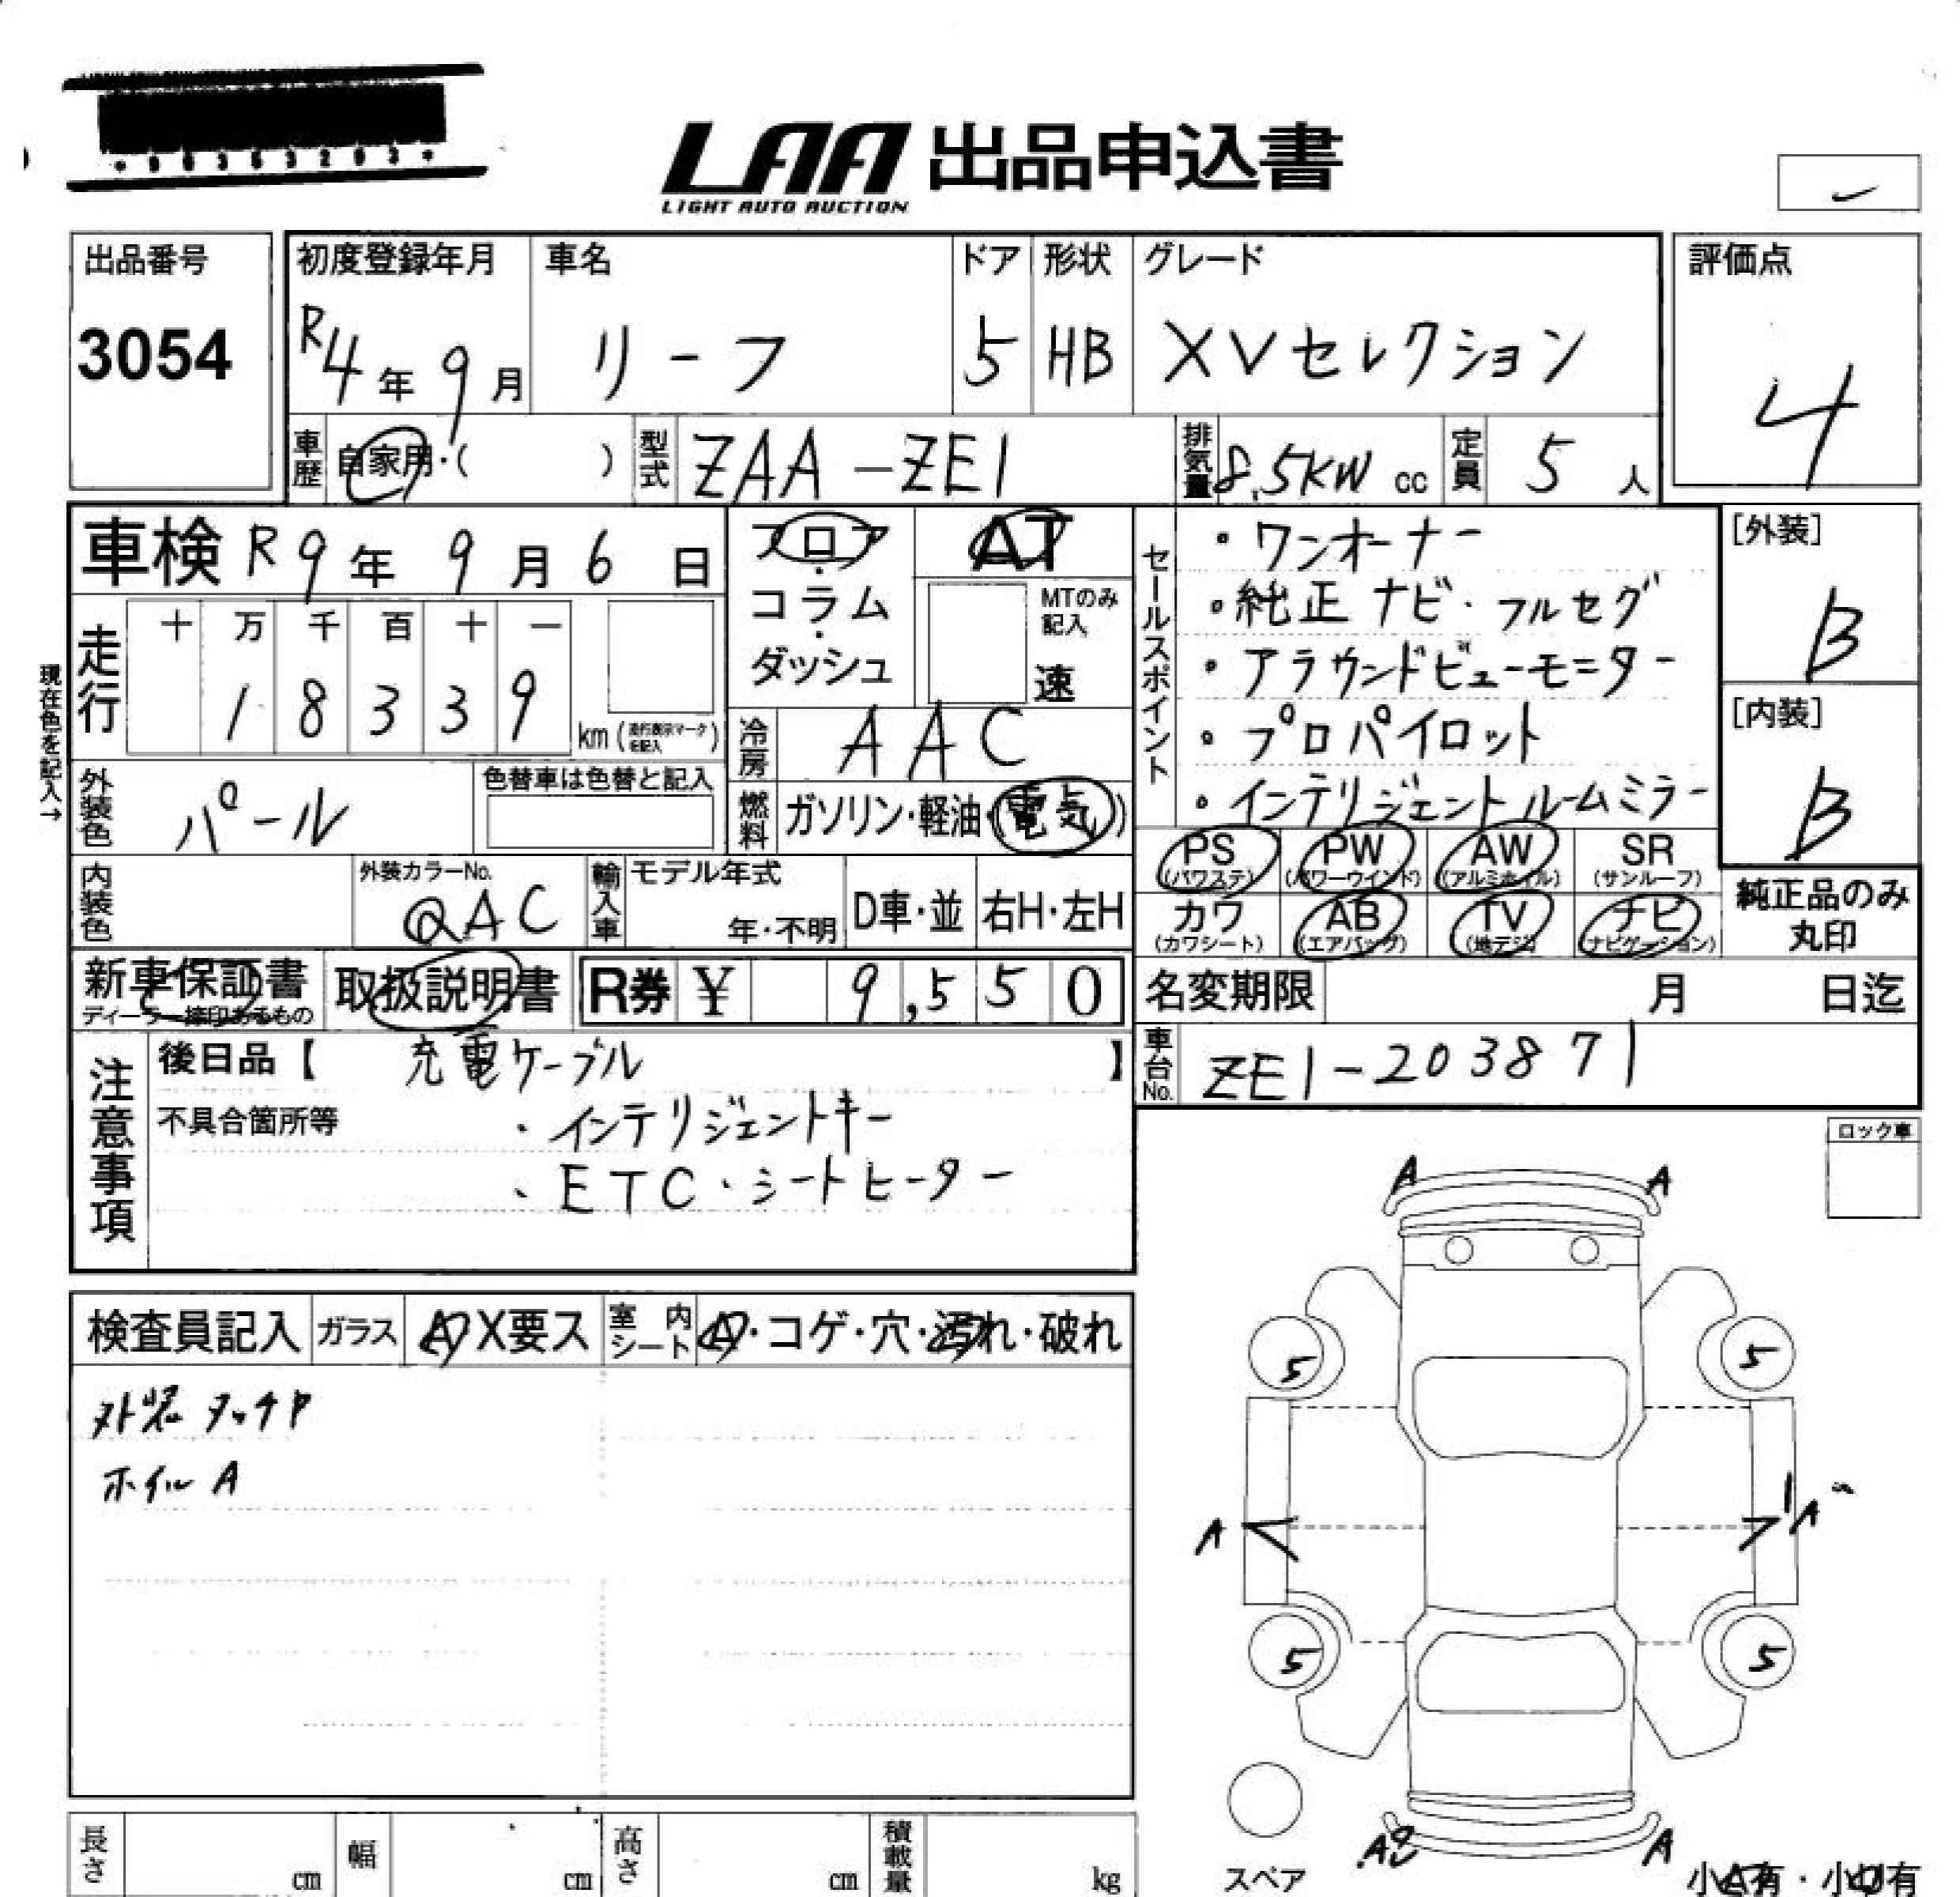 *00363203*
LAA 出品申込書
LIGHT AUTO AUCTION
出品番号
3054
初度登録年月
R4年9月
車名
リーフ
ドア
5
形状
HB
グレード
XVセレクション
評価点
4
車歴
自家用・( )
型式
ZAA-ZE1
排気量
8.5KW cc
定員
5 人
車検 R9年9月6日
フロア・コラム・ダッシュ
AT
MTのみ記入
速
セールスポイント
・ワンオーナー
・純正ナビ・フルセグ
・アラウンドビューモニター
・プロパイロット
・インテリジェントルームミラー
[外装]
B
[内装]
B
現在色を記入→
走行
十 万 千 百 十 一
1 8 3 3 9 km
冷房
AAC
外装色
パール
色替車は色替と記入
燃料
ガソリン・軽油・(電気)
PS (パワステ)
PW (パワーウインド)
AW (アルミホイル)
SR (サンルーフ)
カワ (カワシート)
AB (エアバッグ)
TV (地デジ)
ナビ (ナビゲーション)
純正品のみ丸印
内装色
外装カラーNo.
QAC
輸入車
モデル年式
年・不明
D車・並
右H・左H
新車保証書
ディーラー捺印あるもの
取扱説明書
R券 ¥ 9,550
名変期限 月 日迄
注意事項
後日品【 充電ケーブル 】
不具合箇所等
・インテリジェントキー
・ETC・シートヒーター
車台No.
ZE1-203871
ロック車
検査員記入
ガラス
A X要ス
室内シート
A・コゲ・穴・汚れ・破れ
外装タッチP
ホイルA
A A
5 5
A A
5 5
A A
スペア
小A有・小U有
長さ cm
幅 cm
高さ cm
積載量 kg